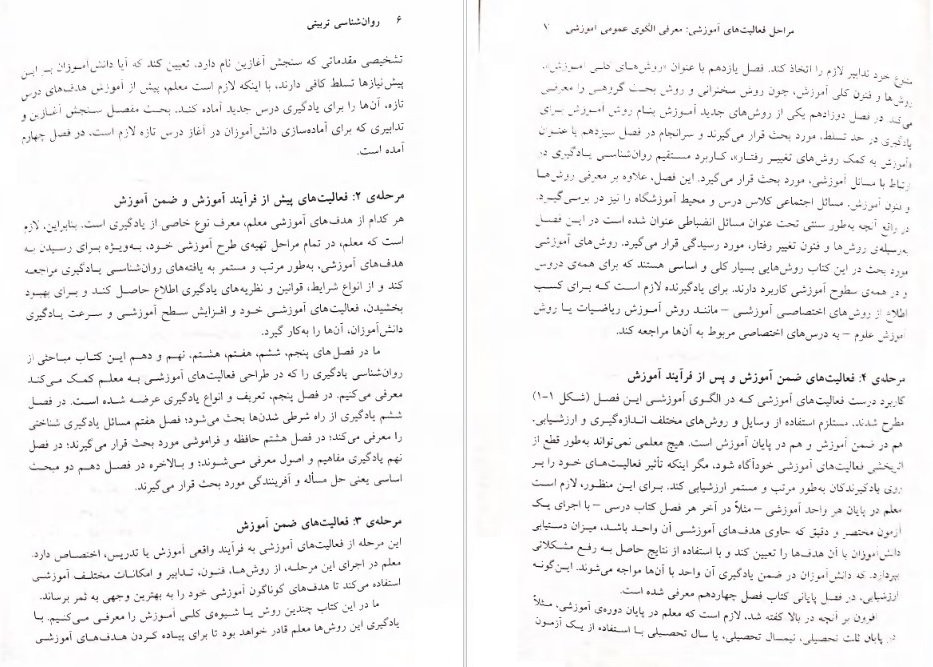 ۶ روان‌شناسی تربیتی
تشخیصی مقدماتی که سنجش آغازین نام دارد، تعیین کند که آیا دانش‌آموزان بر این
پیش‌نیازها تسلط کافی دارند، یا اینکه لازم است معلم، پیش از آموزش هدف‌های درس
تازه، آن‌ها را برای یادگیری درس جدید آماده کند. بحث مفصل سنجش آغازین و
تدابیری که برای آماده‌سازی دانش‌آموزان در آغاز درس تازه لازم است، در فصل چهارم
آمده است.
مرحله‌ی ۲: فعالیت‌های پیش از فرآیند آموزش و ضمن آموزش
هر کدام از هدف‌های آموزشی معلم، معرف نوع خاصی از یادگیری است. بنابراین، لازم
است که معلم، در تمام مراحل تهیه‌ی طرح آموزشی خود، به‌ویژه برای رسیدن به
هدف‌های آموزشی، به‌طور مرتب و مستمر به یافته‌های روان‌شناسی یادگیری مراجعه
کند و از انواع شرایط، قوانین و نظریه‌های یادگیری اطلاع حاصل کند و برای بهبود
بخشیدن، فعالیت‌های آموزشی خود و افزایش سطح آموزشی و سرعت یادگیری
دانش‌آموزان، آن‌ها را به‌کار گیرد.
ما در فصل‌های پنجم، ششم، هفتم، هشتم، نهم و دهم این کتاب مباحثی از
روان‌شناسی یادگیری را که در طراحی فعالیت‌های آموزشی به معلم کمک می‌کند
معرفی می‌کنیم. در فصل پنجم، تعریف و انواع یادگیری عرضه شده است. در فصل
ششم یادگیری از راه شرطی شدن‌ها بحث می‌شود؛ فصل هفتم مسائل یادگیری شناختی
را معرفی می‌کند؛ در فصل هشتم حافظه و فراموشی مورد بحث قرار می‌گیرند؛ در فصل
نهم یادگیری مفاهیم و اصول معرفی می‌شوند؛ و بالاخره در فصل دهم دو مبحث
اساسی یعنی حل مسأله و آفرینندگی مورد بحث قرار می‌گیرند.
مرحله‌ی ۳: فعالیت‌های ضمن آموزش
این مرحله از فعالیت‌های آموزشی به فرآیند واقعی آموزش یا تدریس، اختصاص دارد.
معلم در اجرای این مرحله، از روش‌ها، فنون، تدابیر و امکانات مختلف آموزشی
استفاده می‌کند تا هدف‌های گوناگون آموزشی خود را به بهترین وجهی به ثمر برساند.
ما در این کتاب چندین روش یا شیوه‌ی کلی آموزش را معرفی می‌کنیم. با
یادگیری این روش‌ها معلم قادر خواهد بود تا برای پیاده کردن هدف‌های آموزشی
مراحل فعالیت‌های آموزشی: معرفی الگوی عمومی آموزشی ۷
متنوع خود تدابیر لازم را اتخاذ کند. فصل یازدهم با عنوان «روش‌های کلی آموزش»،
روش‌ها و فنون کلی آموزش، چون روش سخنرانی و روش بحث گروهی را معرفی
می‌کند. در فصل دوازدهم یکی از روش‌های جدید آموزش بنام روش آموزش برای
یادگیری در حد تسلط، مورد بحث قرار می‌گیرند و سرانجام در فصل سیزدهم با عنوان
«آموزش به کمک روش‌های تغییر رفتار»، کاربرد مستقیم روان‌شناسی یادگیری در
ارتباط با مسائل آموزشی، مورد بحث قرار می‌گیرد. این فصل، علاوه بر معرفی روش‌ها
و فنون آموزش، مسائل اجتماعی کلاس درس و محیط آموزشگاه را نیز در برسی‌گیرد.
در واقع آنچه به‌طور سنتی تحت عنوان مسائل انضباطی عنوان شده است در این فصل
به‌وسیله‌ی روش‌ها و فنون تغییر رفتار، مورد رسیدگی قرار می‌گیرد. روش‌های آموزشی
مورد بحث در این کتاب روش‌هایی بسیار کلی و اساسی هستند که برای همه‌ی دروس
و در همه‌ی سطوح آموزشی کاربرد دارند. برای یادگیرنده لازم است که برای کسب
اطلاع از روش‌های اختصاصی آموزشی – مانند روش آموزش ریاضیات یا روش
آموزش علوم – به درس‌های اختصاصی مربوط به آن‌ها مراجعه کند.
مرحله‌ی ۴: فعالیت‌های ضمن آموزش و پس از فرآیند آموزش
کاربرد درست فعالیت‌های آموزشی که در الگوی آموزشی این فصل (شکل ۱-۱)
مطرح شدند، مستلزم استفاده از وسایل و روش‌های مختلف اندازه‌گیری و ارزشیابی،
هم در ضمن آموزش و هم در پایان آموزش است. هیچ معلمی نمی‌تواند به‌طور قطع از
اثربخشی فعالیت‌های آموزشی خودآگاه شود، مگر اینکه تأثیر فعالیت‌های خود را بر
روی یادگیرندگان به‌طور مرتب و مستمر ارزشیابی کند. برای این منظور، لازم است
معلم در پایان هر واحد آموزشی – مثلاً در آخر هر فصل کتاب درسی – با اجرای یک
آزمون مختصر و دقیق که حاوی هدف‌های آموزشی آن واحد باشد، میزان دستیابی
دانش‌آموزان با آن هدف‌ها را تعیین کند و با استفاده از نتایج حاصل به رفع مشکلاتی
بپردازد، که دانش‌آموزان در ضمن یادگیری آن واحد با آن‌ها مواجه می‌شوند. این‌گونه
ارزشیابی، در فصل پایانی کتاب فصل چهاردهم معرفی شده است.
افزون بر آنچه در بالا گفته شد، لازم است که معلم در پایان دوره‌ی آموزشی، مثلاً
در پایان ثلث تحصیلی، نیمسال تحصیلی، یا سال تحصیلی با استفاده از یک آزمون